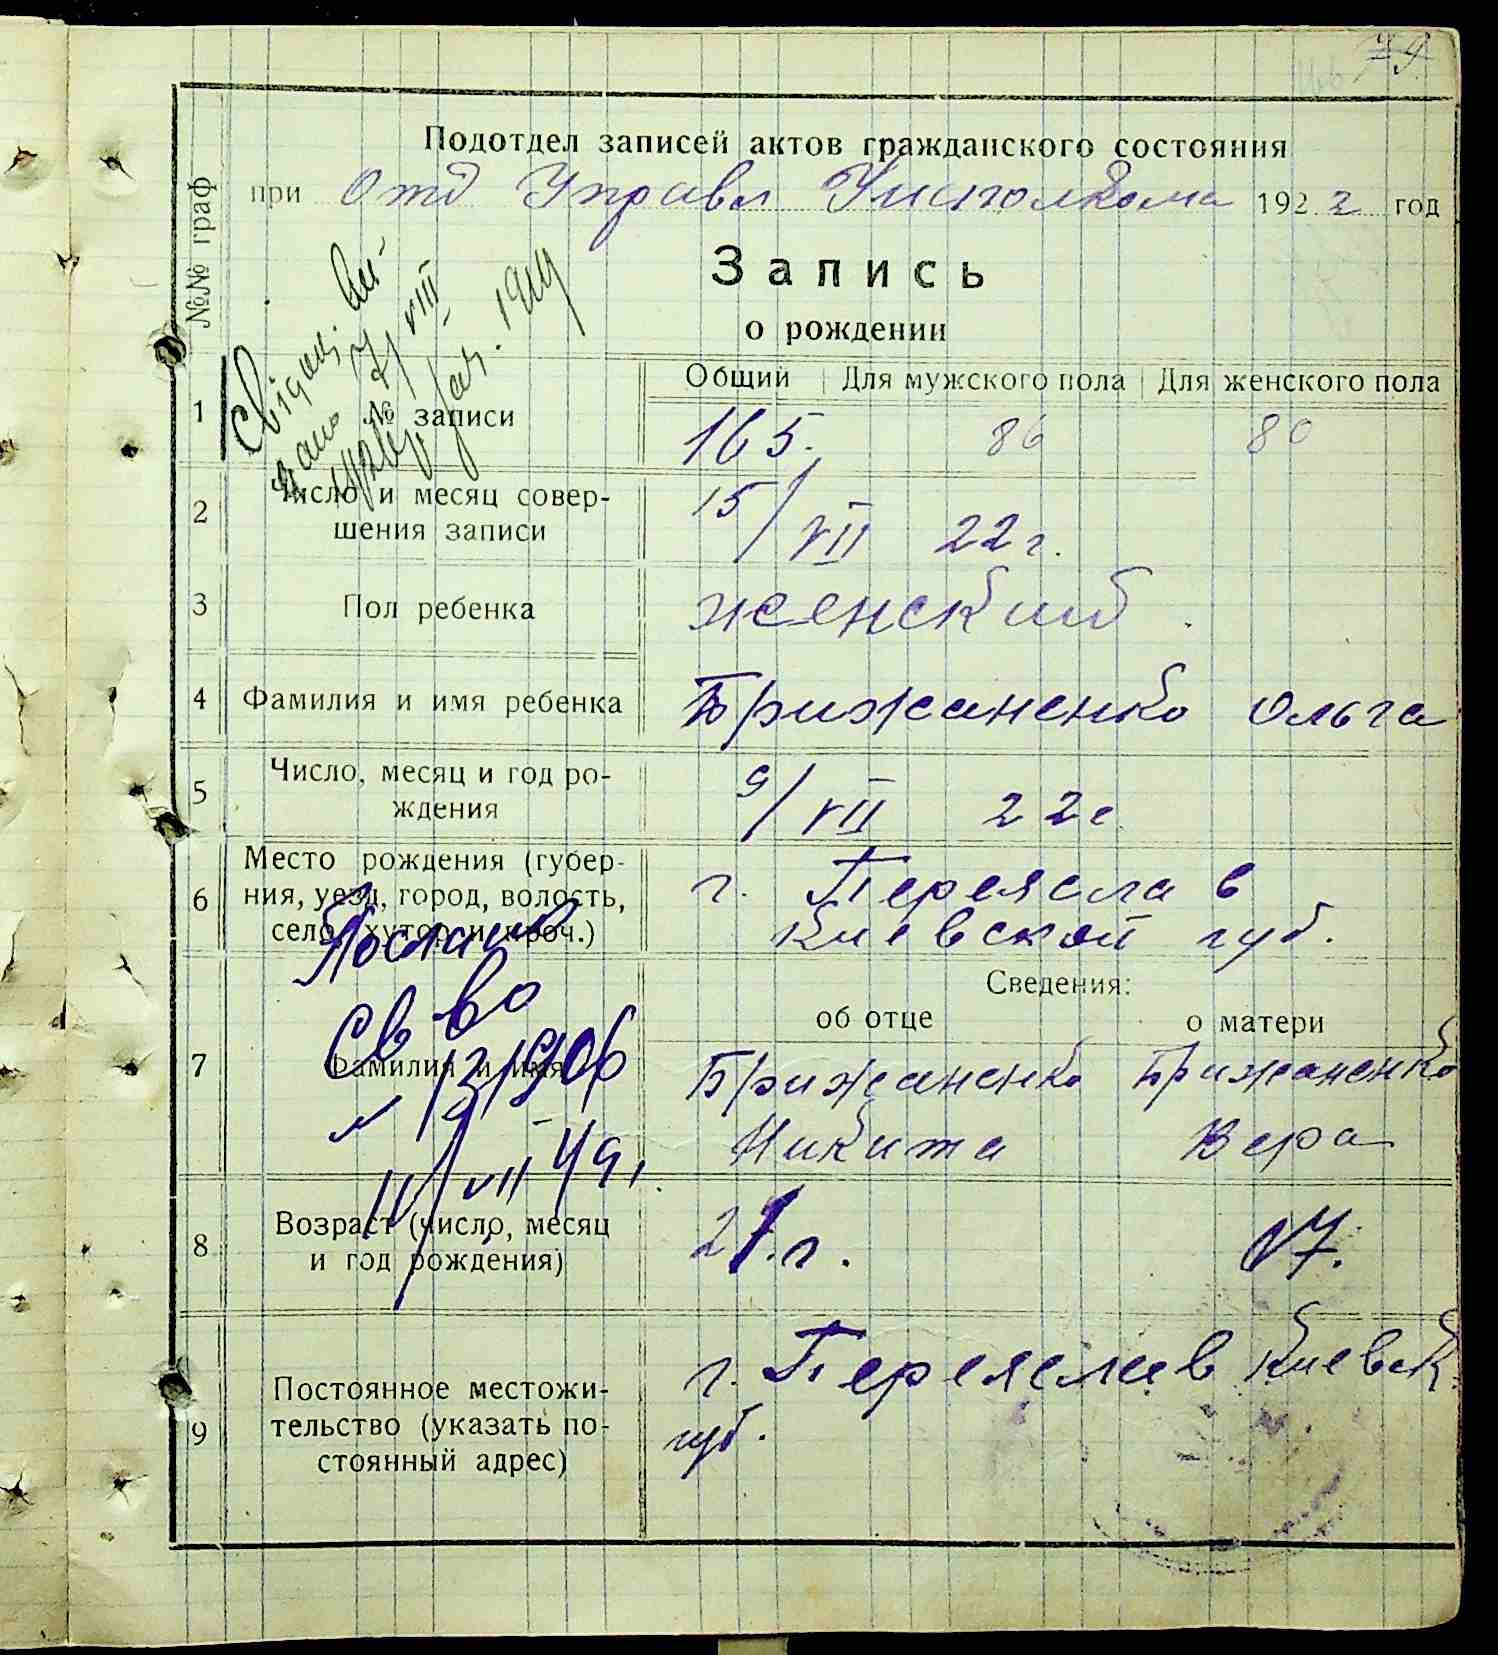 79
Подотдел записей актов гражданского состояния
при Отд Управл Уисполкома 1922 год
№№ граф
Запись
о рождении
Общий Для мужского пола Для женского пола
1 № записи 165. 86 80
2 Число и месяц совер-
шения записи 15/VII 22 г.
3 Пол ребенка женский.
4 Фамилия и имя ребенка Брижаненко Ольга
5 Число, месяц и год ро-
ждения 9/VII 22 г
6 Место рождения (губер-
ния, уезд, город, волость,
село, хутор и проч.) г. Переяслав
Киевской губ.
Послано
Св во
Сведения:
об отце о матери
7 Фамилия и имя Брижаненко Брижаненко
Никита Вера
VII 49.
8 Возраст (число, месяц
и год рождения) 21.г. 17.
9 Постоянное местожи-
тельство (указать по-
стоянный адрес) г. Переяслав Киевск
губ.